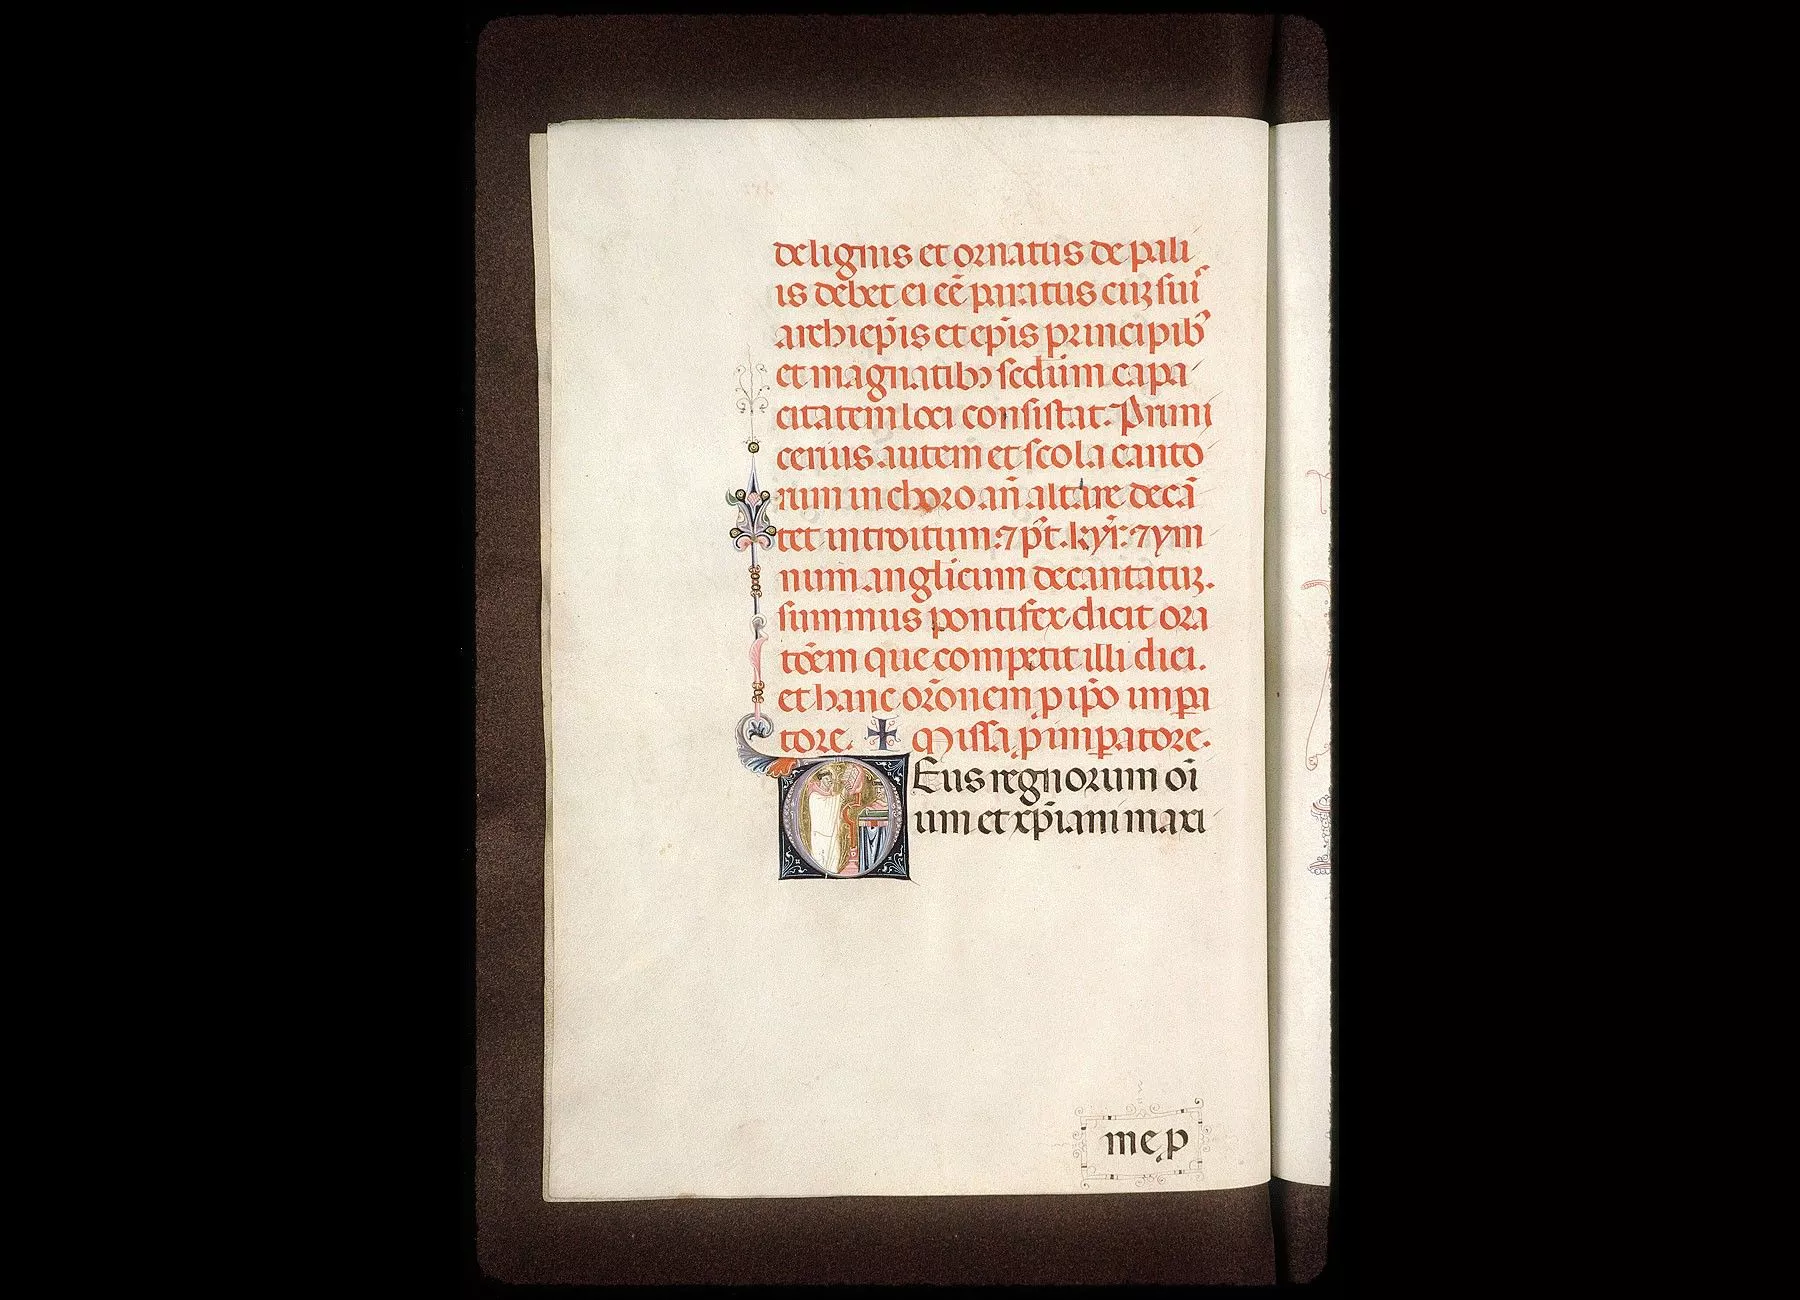 de lignis et ornatus de pali
is debet ei eē paratus cuȝ suiˢ
archiep̄is et ep̄is principibꝰ
et magnatibꝫ sedium capa
citatem loci consistat. Primi
cerius autem et scola canto
rum in choro añ altare decā
tet introitum. ⁊ p̄t. kyr̄. ⁊ ym
num anglicum decantatuꝝ.
summus pontifex dicit ora
tōēm que competit illi diei.
et hanc orōnem p ip̄o imꝑa
tore. ✠ Missa ꝑ imꝑatore.
DEus regnorum oī
um et xp̄iani maxi
me p